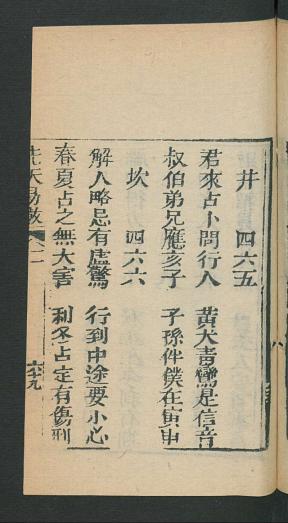 井 四六五
君來占卜問行人 黃犬青鸞是信音
叔伯弟兄應亥子 子孫伴僕在寅申
坎 四六六
解人略忌有虛驚 行到中途要小心
春夏占之無大害 利冬占定有傷刑
先天易數 卷二 六十九